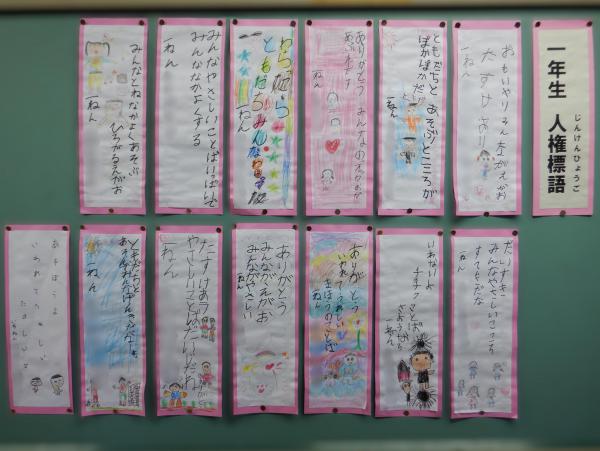 一年生 人権標語
じんけんひょうご
たすけあい
一ねん
ともだちと あそぶとこころが
ぽかぽかだ
一ねん
ありがとう みんなのえがおが
一ねん
わらったら
ともだちみんな
一ねん
みんなやさしいことばいっぱいで
みんななかよくする
一ねん
みんなとねなかよくあそぶ
ひろがるえがお
一ねん
だいすき
みんなやさしいこころ
すてきだな
一ねん
いわないよ
チクチクことば
さようなら
一ねん
ありがとう
いわれてうれしい
まほうのことば
一ねん
ありがとう
みんながえがお
みんながやさしい
一ねん
たすけあう
やさしいことばだいじだね
一ねん
ともだちと
一ねん
あそぼうよ
いわれてうれしい
たのしいよ
一ねん